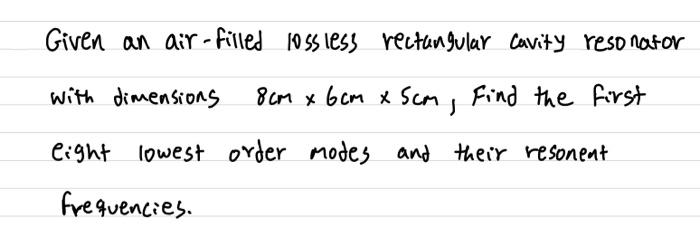 Given an air-filled lossless rectangular cavity resonator
with dimensions 8cm x 6cm x 5cm, Find the first
eight lowest order modes and their resonent
frequencies.